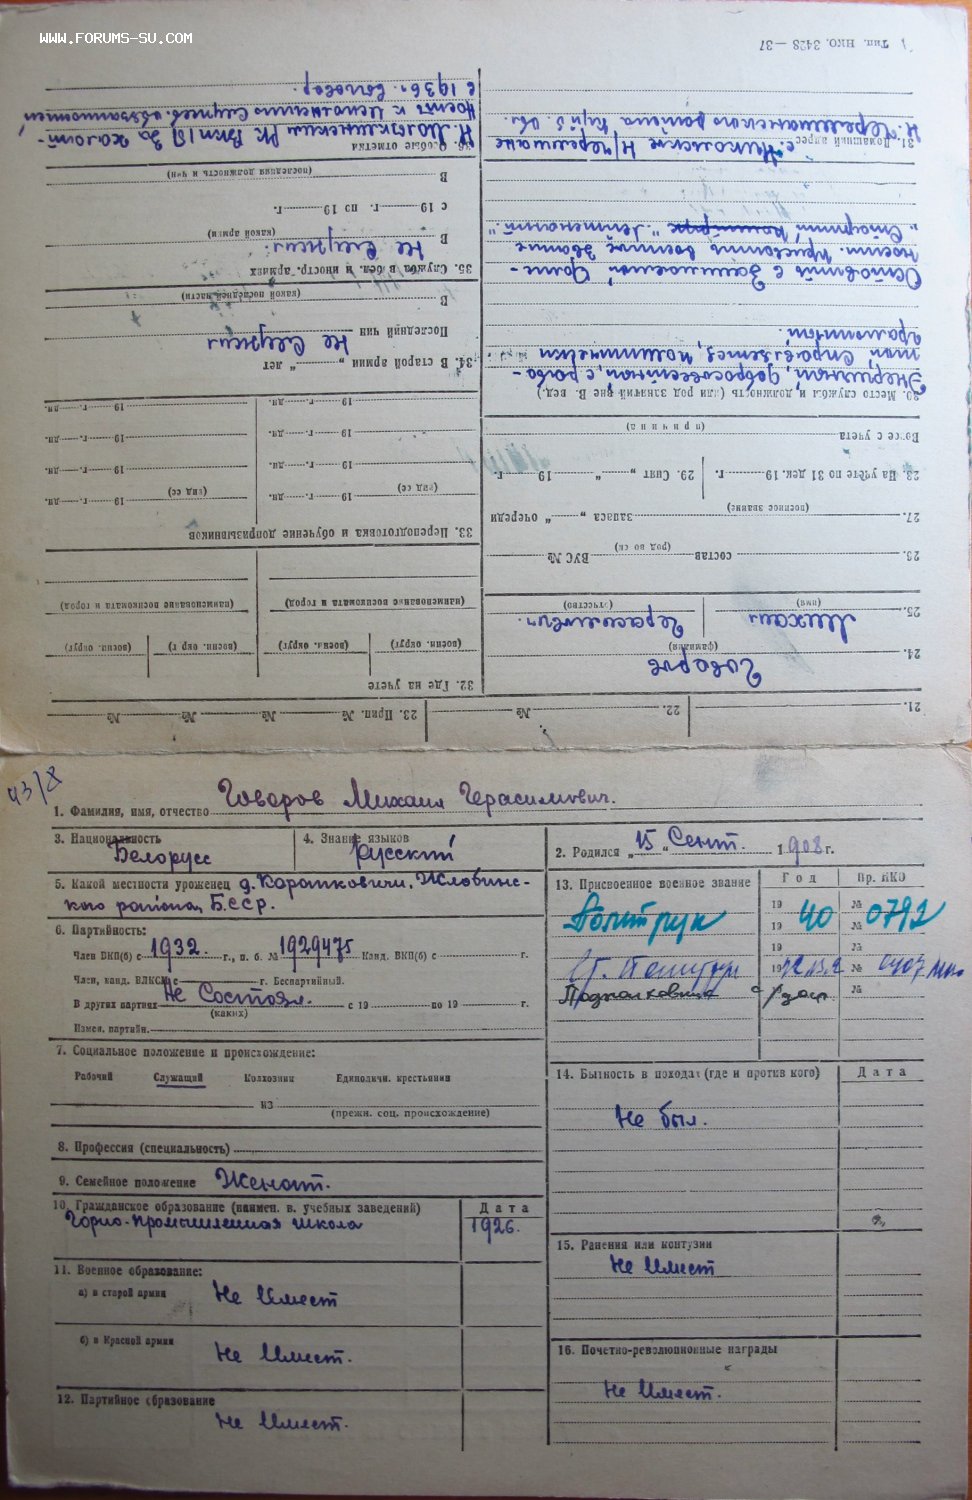 WWW.FORUMS-SU.COM
Тип. НКО. 3428—37
21. 22. № 23. Прип. № № № №
24. Говоров
(фамилия)
25. Михаил Герасимович.
(имя) (отчество)
26. состав ВУС №
(род во ск)
27. запаса „ “ очереди
(военное звание)
28. На учете по 31 дек. 19 г. 29. Снят „ “ 19 г.
с учета
(причина)
30. Место службы и должность (или род занятий вне В. вед.)
Энергичный, добросовестный, с рабо-
той справляется, политически
грамотный.
Оставить в занимаемой долж-
ности. Присвоить военное звание
„Старший Лейтенант“.
31. Домашний адрес с. Никольское Н/Черемшане
Н. Черемшанского района Куйб. Обл.
32. Где на учете
(воен. округ) (воен. округ) (воен. окр г) (воен. округ)
(наименование военкомата и город) (наименование военкомата и город)
33. Переподготовка и обучение допризывников
19 г. дн. 19 г. дн.
(вид сс) (вид сс)
19 г. дн. 19 г. дн.
19 г. дн. 19 г. дн.
19 г. дн. 19 г. дн.
34. В старой армии „ “ лет
Не Служил
Последний чин
В
(какой последней части)
35. Служба в бел. и иностр. армиях
В Не Служил.
(какой армии)
с 19 г. по 19 г.
В
(последняя должность и чин)
36. Особые отметки
РК ВКП/б/ за халат-
ность к исполнению служеб. обязанностей
в 1936г. выговор.
43/8
1. Фамилия, имя, отчество Говоров Михаил Герасимович.
3. Национальность Белорусс
4. Знание языков Русский
2. Родился „15“ Сент. 1908 г.
5. Какой местности уроженец д. Коротковичи, Жлобинс-
кого района, Б.С.С.Р.
6. Партийность:
Член ВКП(б) с 1932. г., п. б. № 1929475 Канд. ВКП(б) с г.
Член, канд. ВЛКСМ с г. Беспартийный.
В других партиях Не Состоял. с 19 по 19 г.
(каких)
Измен. партийн.
7. Социальное положение и происхождение:
Рабочий Служащий Колхозник Единоличн. крестьянин
из
(прежн. соц. происхождение)
8. Профессия (специальность)
9. Семейное положение Женат.
10. Гражданское образование (наимен. в. учебных заведений) Дата
Горно-промышленная школа 1926.
11. Военное образование:
а) в старой армии Не Имеет
б) в Красной армии Не Имеет.
12. Партийное образование
Не Имеет.
13. Присвоенное военное звание Год Пр. НКО
Политрук 19 40 № 0792
Ст. Политрук 1942 № 0407
Подполковник
14. Бытность в походах (где и против кого) Дата
Не был.
15. Ранения или контузии
Не Имеет
16. Почетно-революционные награды
Не Имеет.